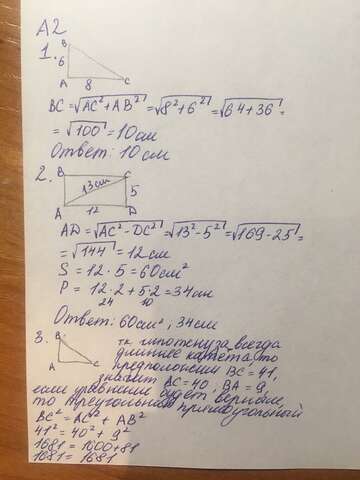 А2
1.
B
6
A 8 C
BC = √AC² + AB² = √8² + 6² = √64 + 36 =
= √100 = 10 см
Ответ: 10 см
2. B C
13 см 5
A 12 D
AD = √AC² - DC² = √13² - 5² = √169 - 25 =
= √144 = 12 см
S = 12 · 5 = 60 см²
P = 12 · 2 + 5 · 2 = 34 см
24 10
Ответ: 60 см², 34 см
3. B
A C
тк гипотенуза всегда
длиннее катета, то
предположим BC = 41,
значит AC = 40, BA = 9,
если уравнение будет верным,
то треугольник прямоугольный
BC² = AC² + AB²
41² = 40² + 9²
1681 = 1600 + 81
1681 = 1681